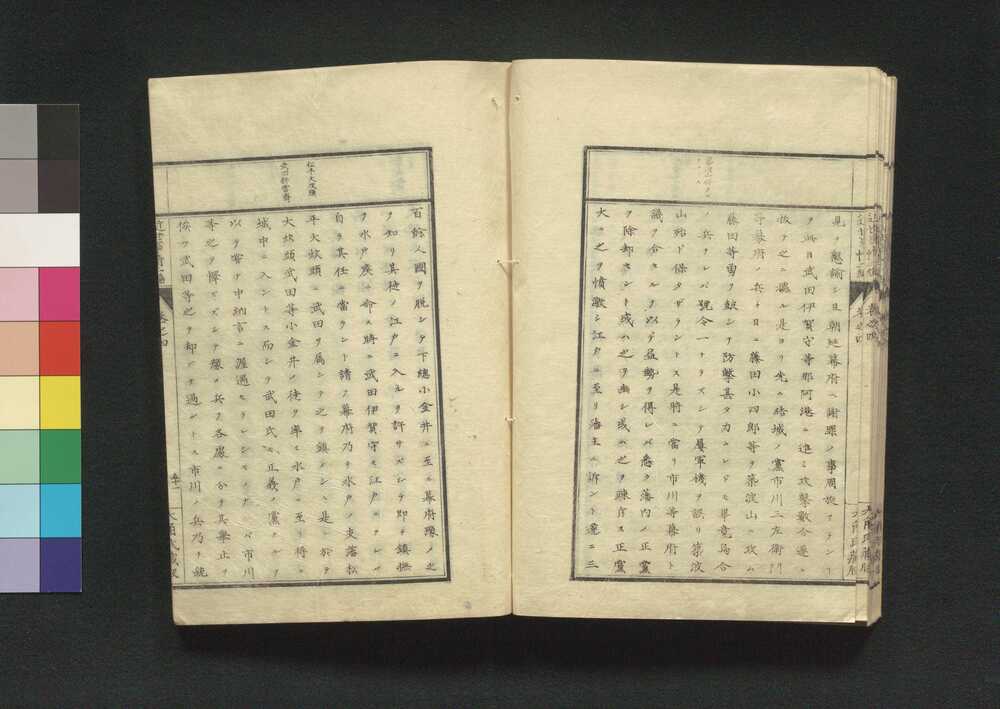 見ノ懇諭シ且朝廷幕府ヘ謝罪ノ事周旋アランヿ
ヲ此日武田伊賀守等那阿港ニ進ミ攻撃數合遂ニ
抜テ之ニ據ル是ヨリ先キ結城ノ黨市川三左衛門
等幕府ノ兵ト日ニ藤田小四郎等ヲ築波山ニ攻ム
藤田等勇ヲ鼓シテ防撃甚タカムレドモ畢竟烏合
ノ兵ナレバ號令一ナラズシテ屢軍機ヲ誤リ築波
山殆ド保タザラントス是時ニ當リ市川等幕府ト
議ヲ合セルヲ以テ益勢ヲ得レバ悉ク藩内ノ正黨
ヲ除却セント或ハ之ヲ幽シ或ハ之ヲ竦斥ス正黨
大ニ之ヲ憤激シ江戸ニ至リ藩主ニ訴ント遂ニ三
松平大炊頭
武田耕雲齋
百餘人國ヲ脱シテ下總小金井ニ至ル幕府豫メ之
ヲ知リ其徒ノ江戸ニ入ルヲ許サズシテ即チ鎮撫
ヲ水戸侯ニ命ス時ニ武田伊賀守モ江戸ニアレバ
自ラ其任ニ當ラント請フ幕府乃チ水戸ノ支落松
平大炊頭ニ武田ヲ属シテ之ヲ鎮シム是ニ於テ
大炊頭武田等小金井ノ徒ヲ率ヒ水戸ニ至リ将ニ
城中ニ入ントス而シテ武田氏ハ正義ノ黨タルヲ
以テ常ニ中納言ニ渥遇セラレシモノナレバ市川
等之ヲ憚ズシテ豫メ兵ヲ各處ニ分チ其乗止ヲ
候ヒ武田等之ヲ却ケテ過ントス市川ノ兵乃チ銃